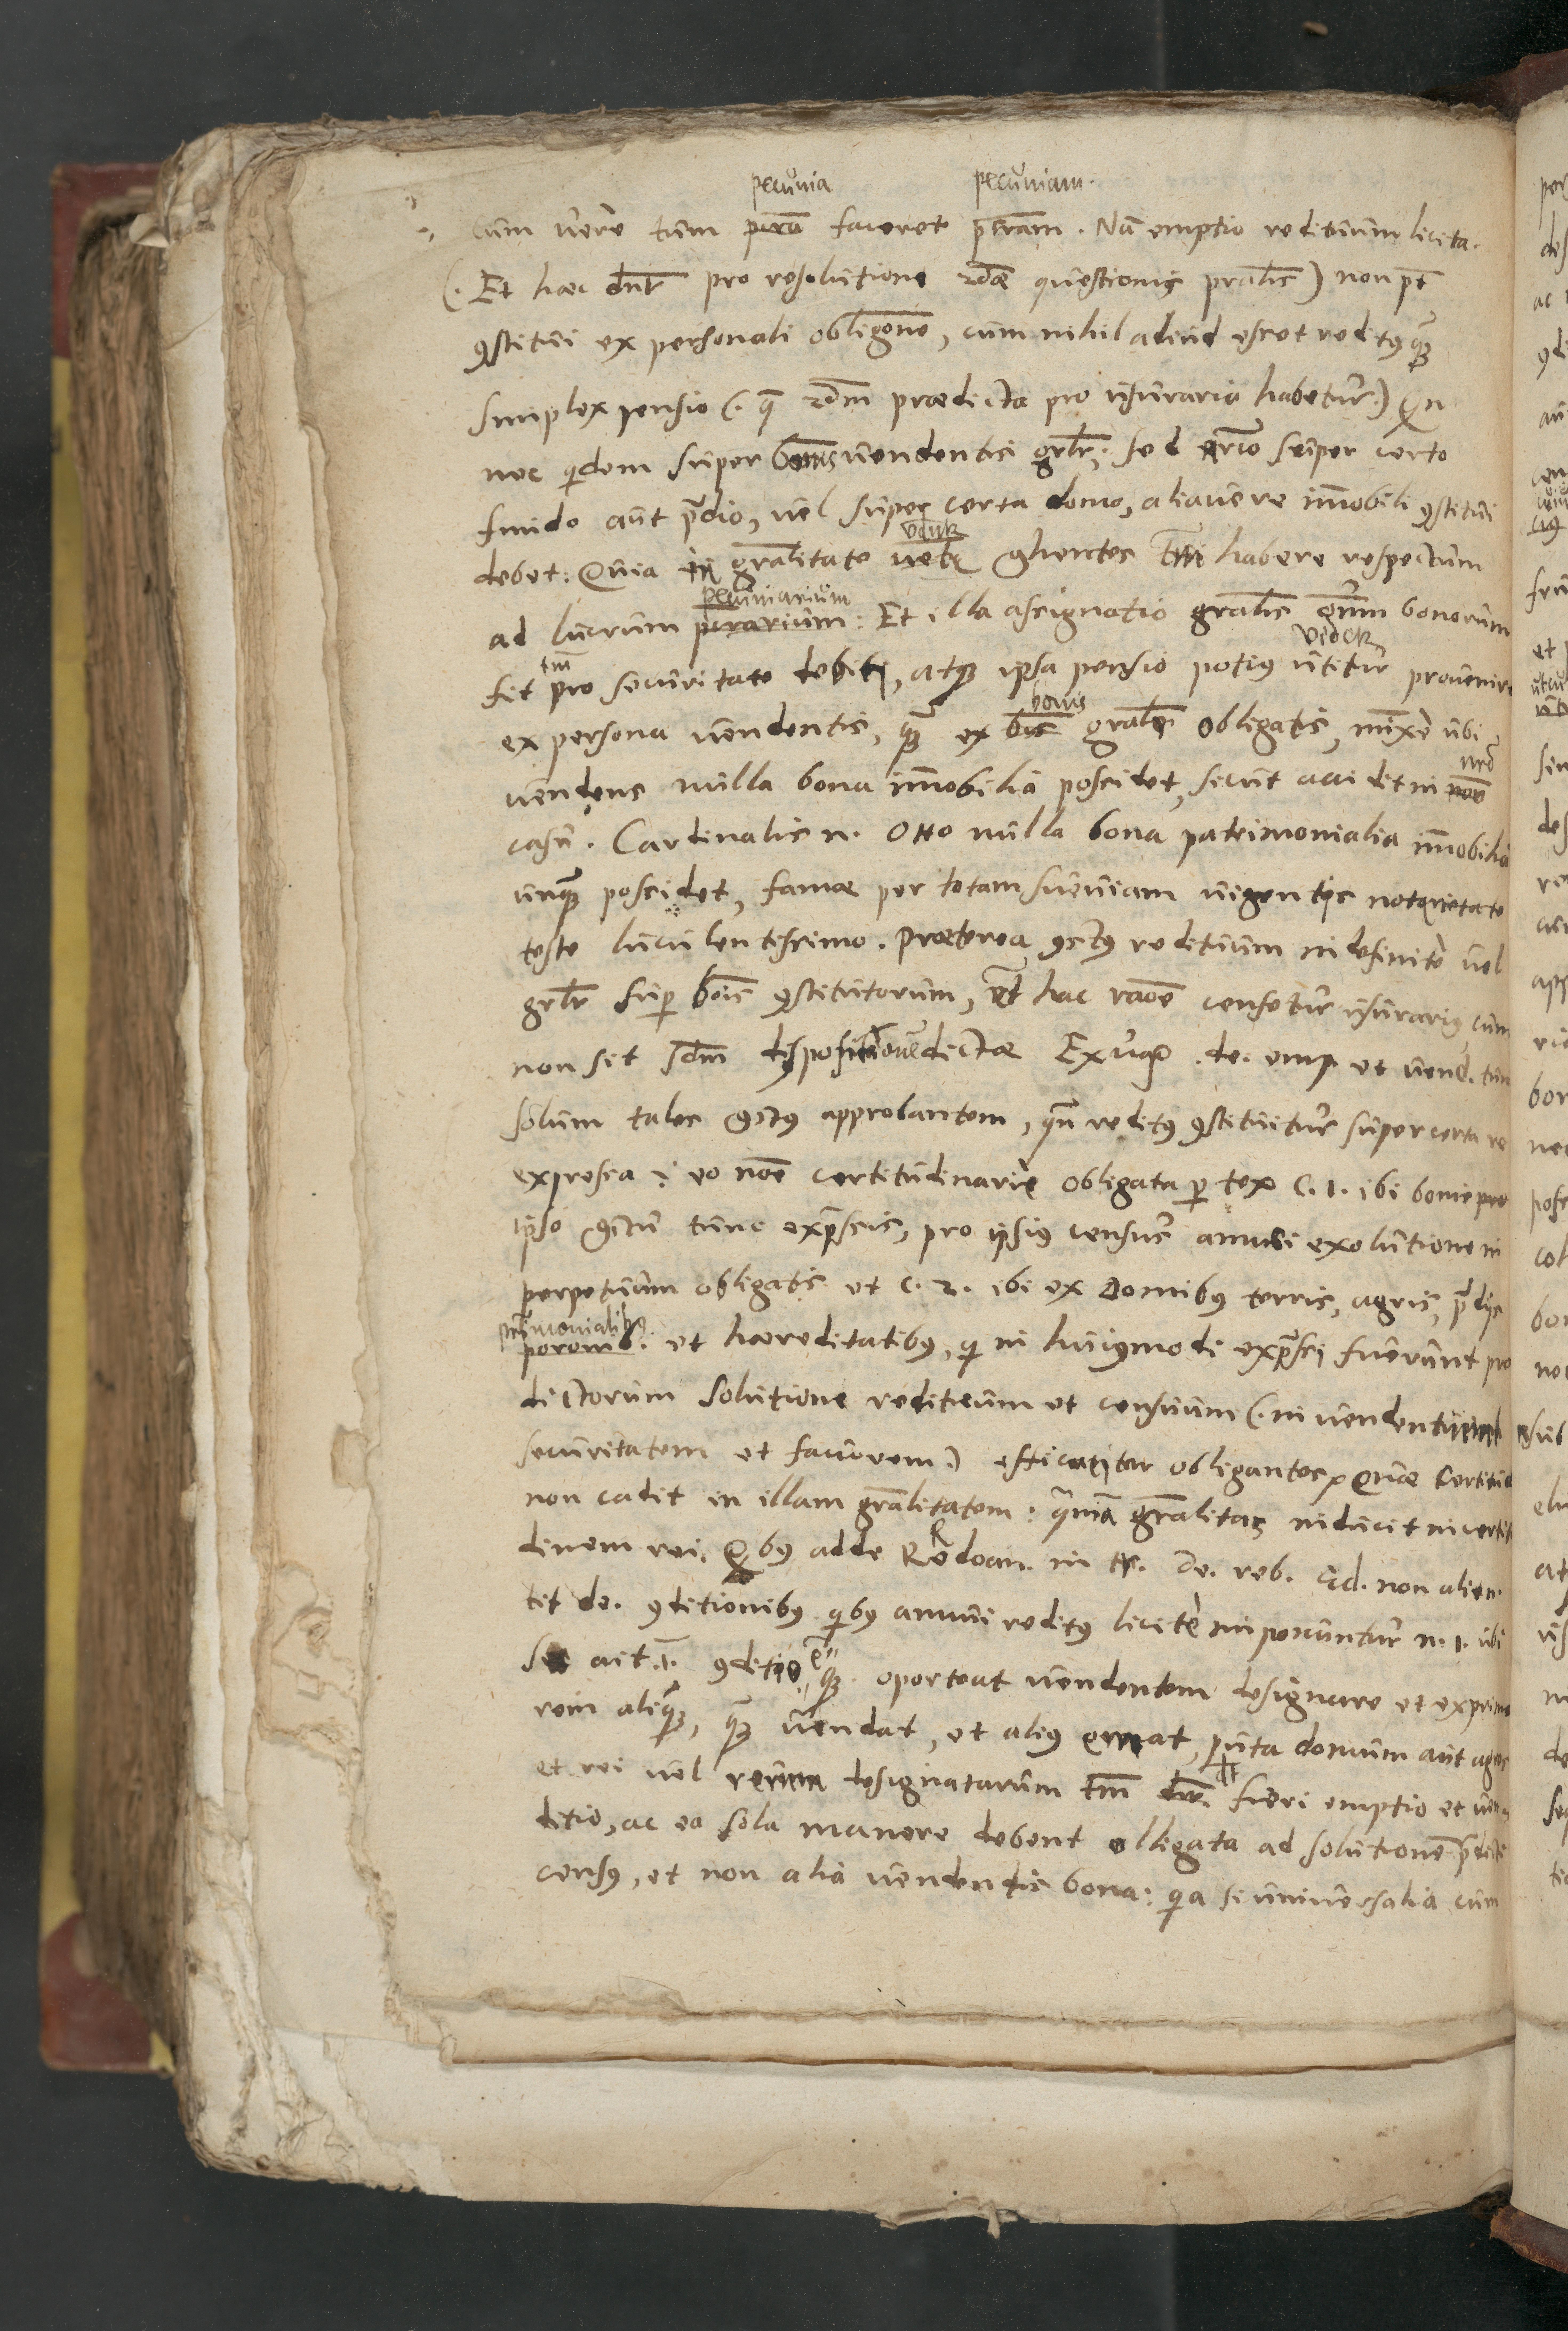 pecunia pecuniam.
cum vere tum faceret . Nã emptio redituum licita.
(. Et haec dnr̃ pro resolutione 2dae questionis pralis̃ ) non pt̃
ꝯstitui ex personali obligone, cum nihil aliud esset redit9 quã
simplex pensio (. q̃ 2dm praedicta pro usuraria habetur.) Qn
nec qidem super bonis vendentis grlr̃; sed semper certo
fundo aut p̃dio, vel super certa domo, aliave re im̃obili ꝯstitui
vidnr
debet: Quia in gralitate ꝯhentes tm̃ habere respectum
pecuniarium
ad lucrum : Et illa assignatio gralis̃ om̃m bonorum
tm̃ videtr
fit pro securitate debiti, atq3 ipsa pensio poti9 provenire
bonis
ex persona vendentis, quã ex gralr̃ obligatis, mãxe ubi
nr̃o
vendens nulla bona im̃obilia possidet, sicut accidit in
casu. Cardinalis n. Otto nulla bona patrimonialia im̃obilia
unquã possidet, famae per totam Sueuiam vigentis notorietate
teste luculentissimo. Praeterea ꝯct9 redituum indefinite vel
grlr̃ sup̃ bonis ꝯstitutorum, et hac raõe censetur usurari9, cum
non sit 2dm dispositionẽ dictae Exvag̃ . de. emp. et vend. tm̃
solum tales ꝯct9 approbantem, qñ redit9 ꝯstituitur super certa re
expressa : eo noĩe certitudinarie obligata p̱ tex C. 1. ibi bonis pro
ipso ꝯctu tunc expressis, pro ipsi9 census annui exolutione in
perpetuum obligatis et c. 2. ibi ex Domib9 terris, agris, p̃dijs
patrimonialib9
et haereditatib9, qi in hui9modi expr̃ssi fuerunt pro
dictorum solutione redituum et censuum (. in vendentium
securitatem et favorem.) efficaciter obligantes. Quae Certitud
non cadit in illam gralitatem : quoniã gralitas inducit incertit
dinem rei. Qib9 adde Redoan. in tr. De. reb. Ecl. non alien.
tit de. ꝯditionib9 qib9 annui redit9 licite imponuntur n. 1. ibi
sic ait .1. ꝯditio ẽ, quod oporteat vendentem designare et exprime
rem aliquã, quã vendat, et ali9 emat, puta domum aut agrum
et rei vel rerum designatarum tm̃ dt̃ fieri emptio et ven
ditio, ac ea sola manere debent obligata ad solutionẽ p̃dicti
cens9, et non alia vendentis bona : qia si universalia cum